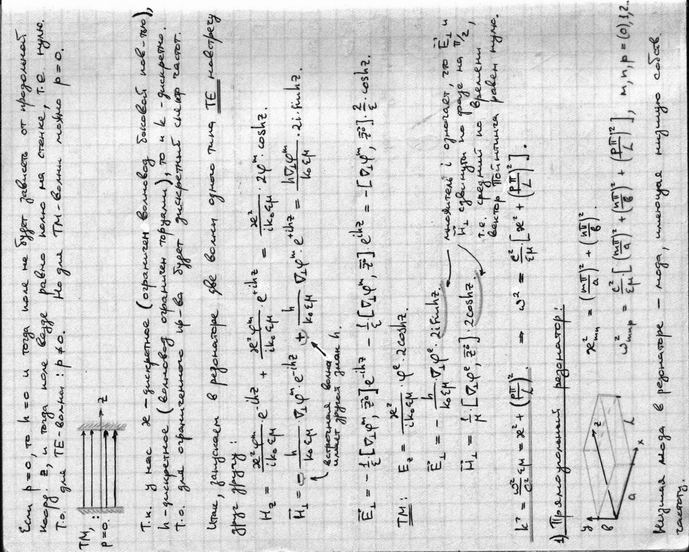 Если p=0, то h=0 и тогда поле не будет зависеть от продольной
коорд. z, и тогда поле везде равно полю на стенке, т.е. нулю.
Т.о. для TE-волны: p≠0. Но для TM-волны можно p=0.
TM,:
p=0.
z
Т.к. у нас æ - дискретное (ограничен волновод боковой пов-тью),
h-дискретное (волновод ограничен торцами), то и k-дискретно.
Т.о. для ограниченного будет дискретный спектр частот.
Итак, запускаем в резонаторе две волны одного типа TE навстречу
друг другу:
H_z = æ²φ^m/(ik₀εμ) e^{-ihz} + æ²φ^m/(ik₀εμ) e^{+ihz} = æ²/(ik₀εμ) · 2φ^m cos hz.
H⃗_⊥ = - h/(k₀εμ) ∇_⊥φ^m · e^{-ihz} + h/(k₀εμ) ∇_⊥φ^m · e^{+ihz} = h∇_⊥φ^m/(k₀εμ) · 2i sin hz.
встречная волна
имеет другой знак h.
E⃗_⊥ = - 1/ε [∇_⊥φ^m, z⃗⁰] e^{-ihz} - 1/ε [∇_⊥φ^m, z⃗⁰] e^{ihz} = - [∇_⊥φ^m, z⃗⁰] · 2/ε · cos hz.
TM: E_z = æ²/(ik₀εμ) · φ^e · 2cos hz.
E⃗_⊥ = - h/(k₀εμ) · ∇_⊥φ^e · 2i sin hz
H⃗_⊥ = 1/μ · [∇_⊥φ^e, z⃗⁰] · 2cos hz
множитель i означает, что E⃗_⊥ и
H⃗_⊥ сдвинуты по фазе на π/2,
т.е. средний по времени
вектор Пойнтинга равен нулю.
k² = ω²/c² εμ = æ² + (pπ/L)² ⇒ ω² = c²/εμ [æ² + (pπ/L)²].
1) Прямоугольный резонатор:
y z x a b L
æ²_{mn} = (mπ/a)² + (nπ/b)².
ω²_{mnp} = c²/εμ · [(mπ/a)² + (nπ/b)² + (pπ/L)²], m,n,p = (0),1,2...
Низшая мода в резонаторе - мода, имеющая низшую собств.
частоту.